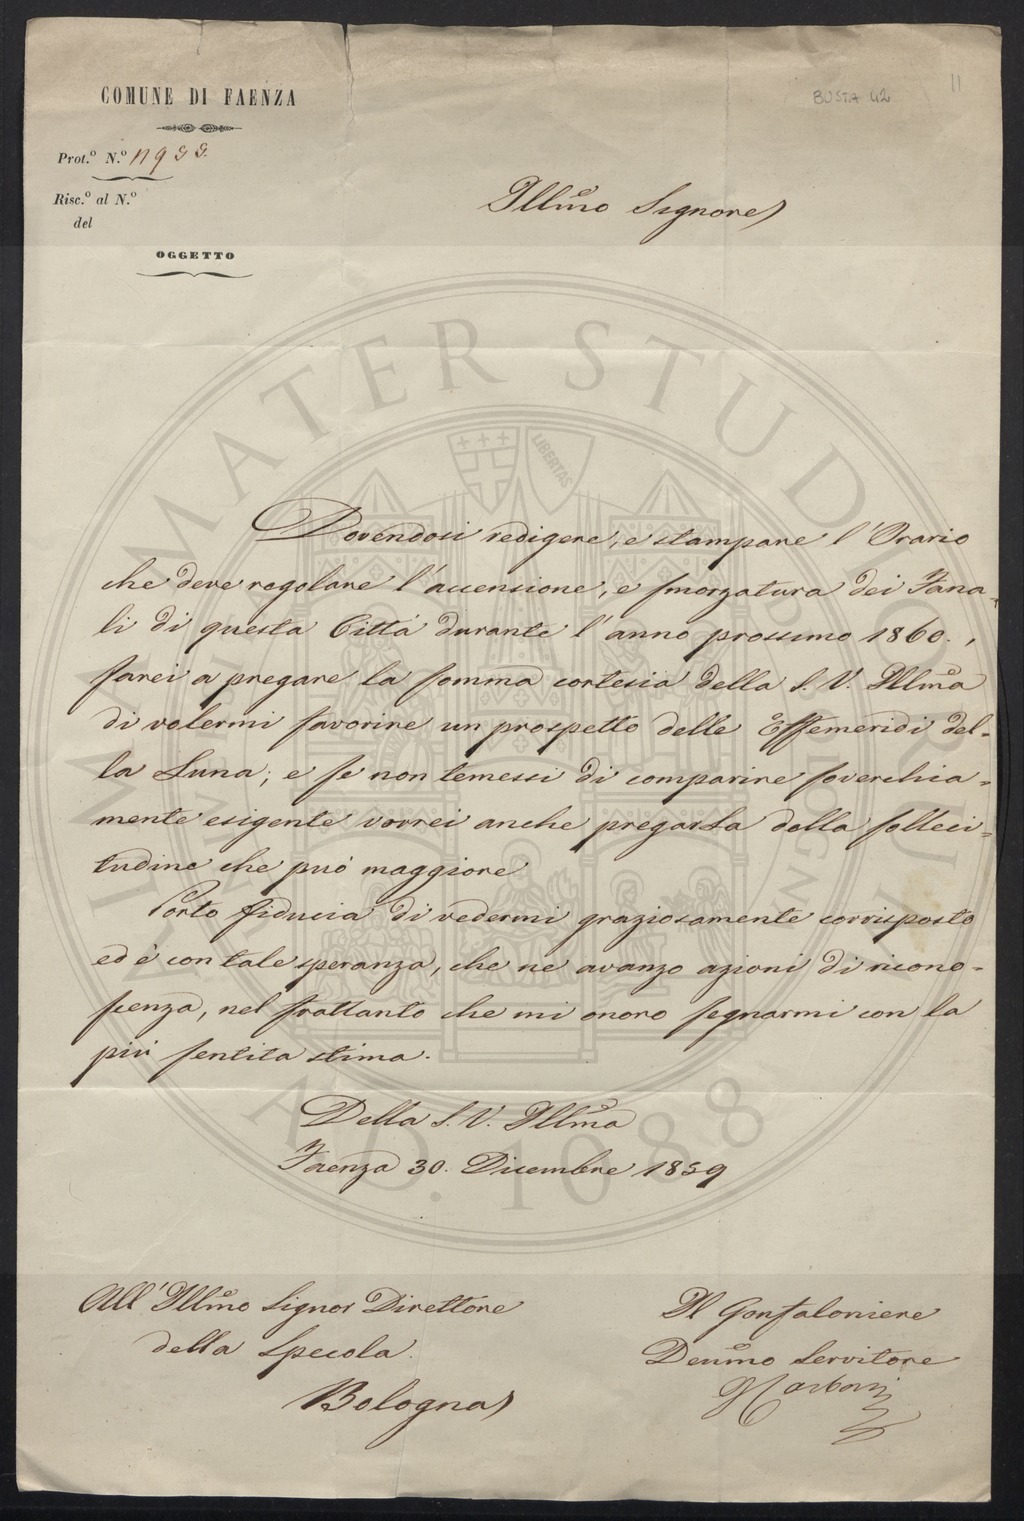 COMUNE DI FAENZA
BUSTA 42
11
Prot.º N.º
Risc.º al N.º
del
OGGETTO
Illmo Signore
Dovendosi redigere, e stampare l'Orario
che deve regolare l'accensione, e smorzatura dei Fana-
li di questa Città durante l'anno prossimo 1860.,
farei a pregare la somma cortesia della S. V. Illma
di volermi favorire un prospetto delle Effemeridi del-
la Luna; e se non temessi di comparire soverchia-
mente esigente vorrei anche pregarLa della solleci-
tudine che può maggiore
Porto fiducia di vedermi graziosamente corrisposto
ed è con tale speranza, che ne avanzo azioni di ricono-
scenza, nel frattanto che mi onoro segnarmi con la
più sentita stima.
Della S. V. Illma
Faenza 30. Dicembre 1859
All'Illmo Signor Direttore
della Specola.
Bologna
Il Gonfaloniere
Devmo Servitore
ALMA MATER STUDIORUM
LIBERTAS
A.D. 1088